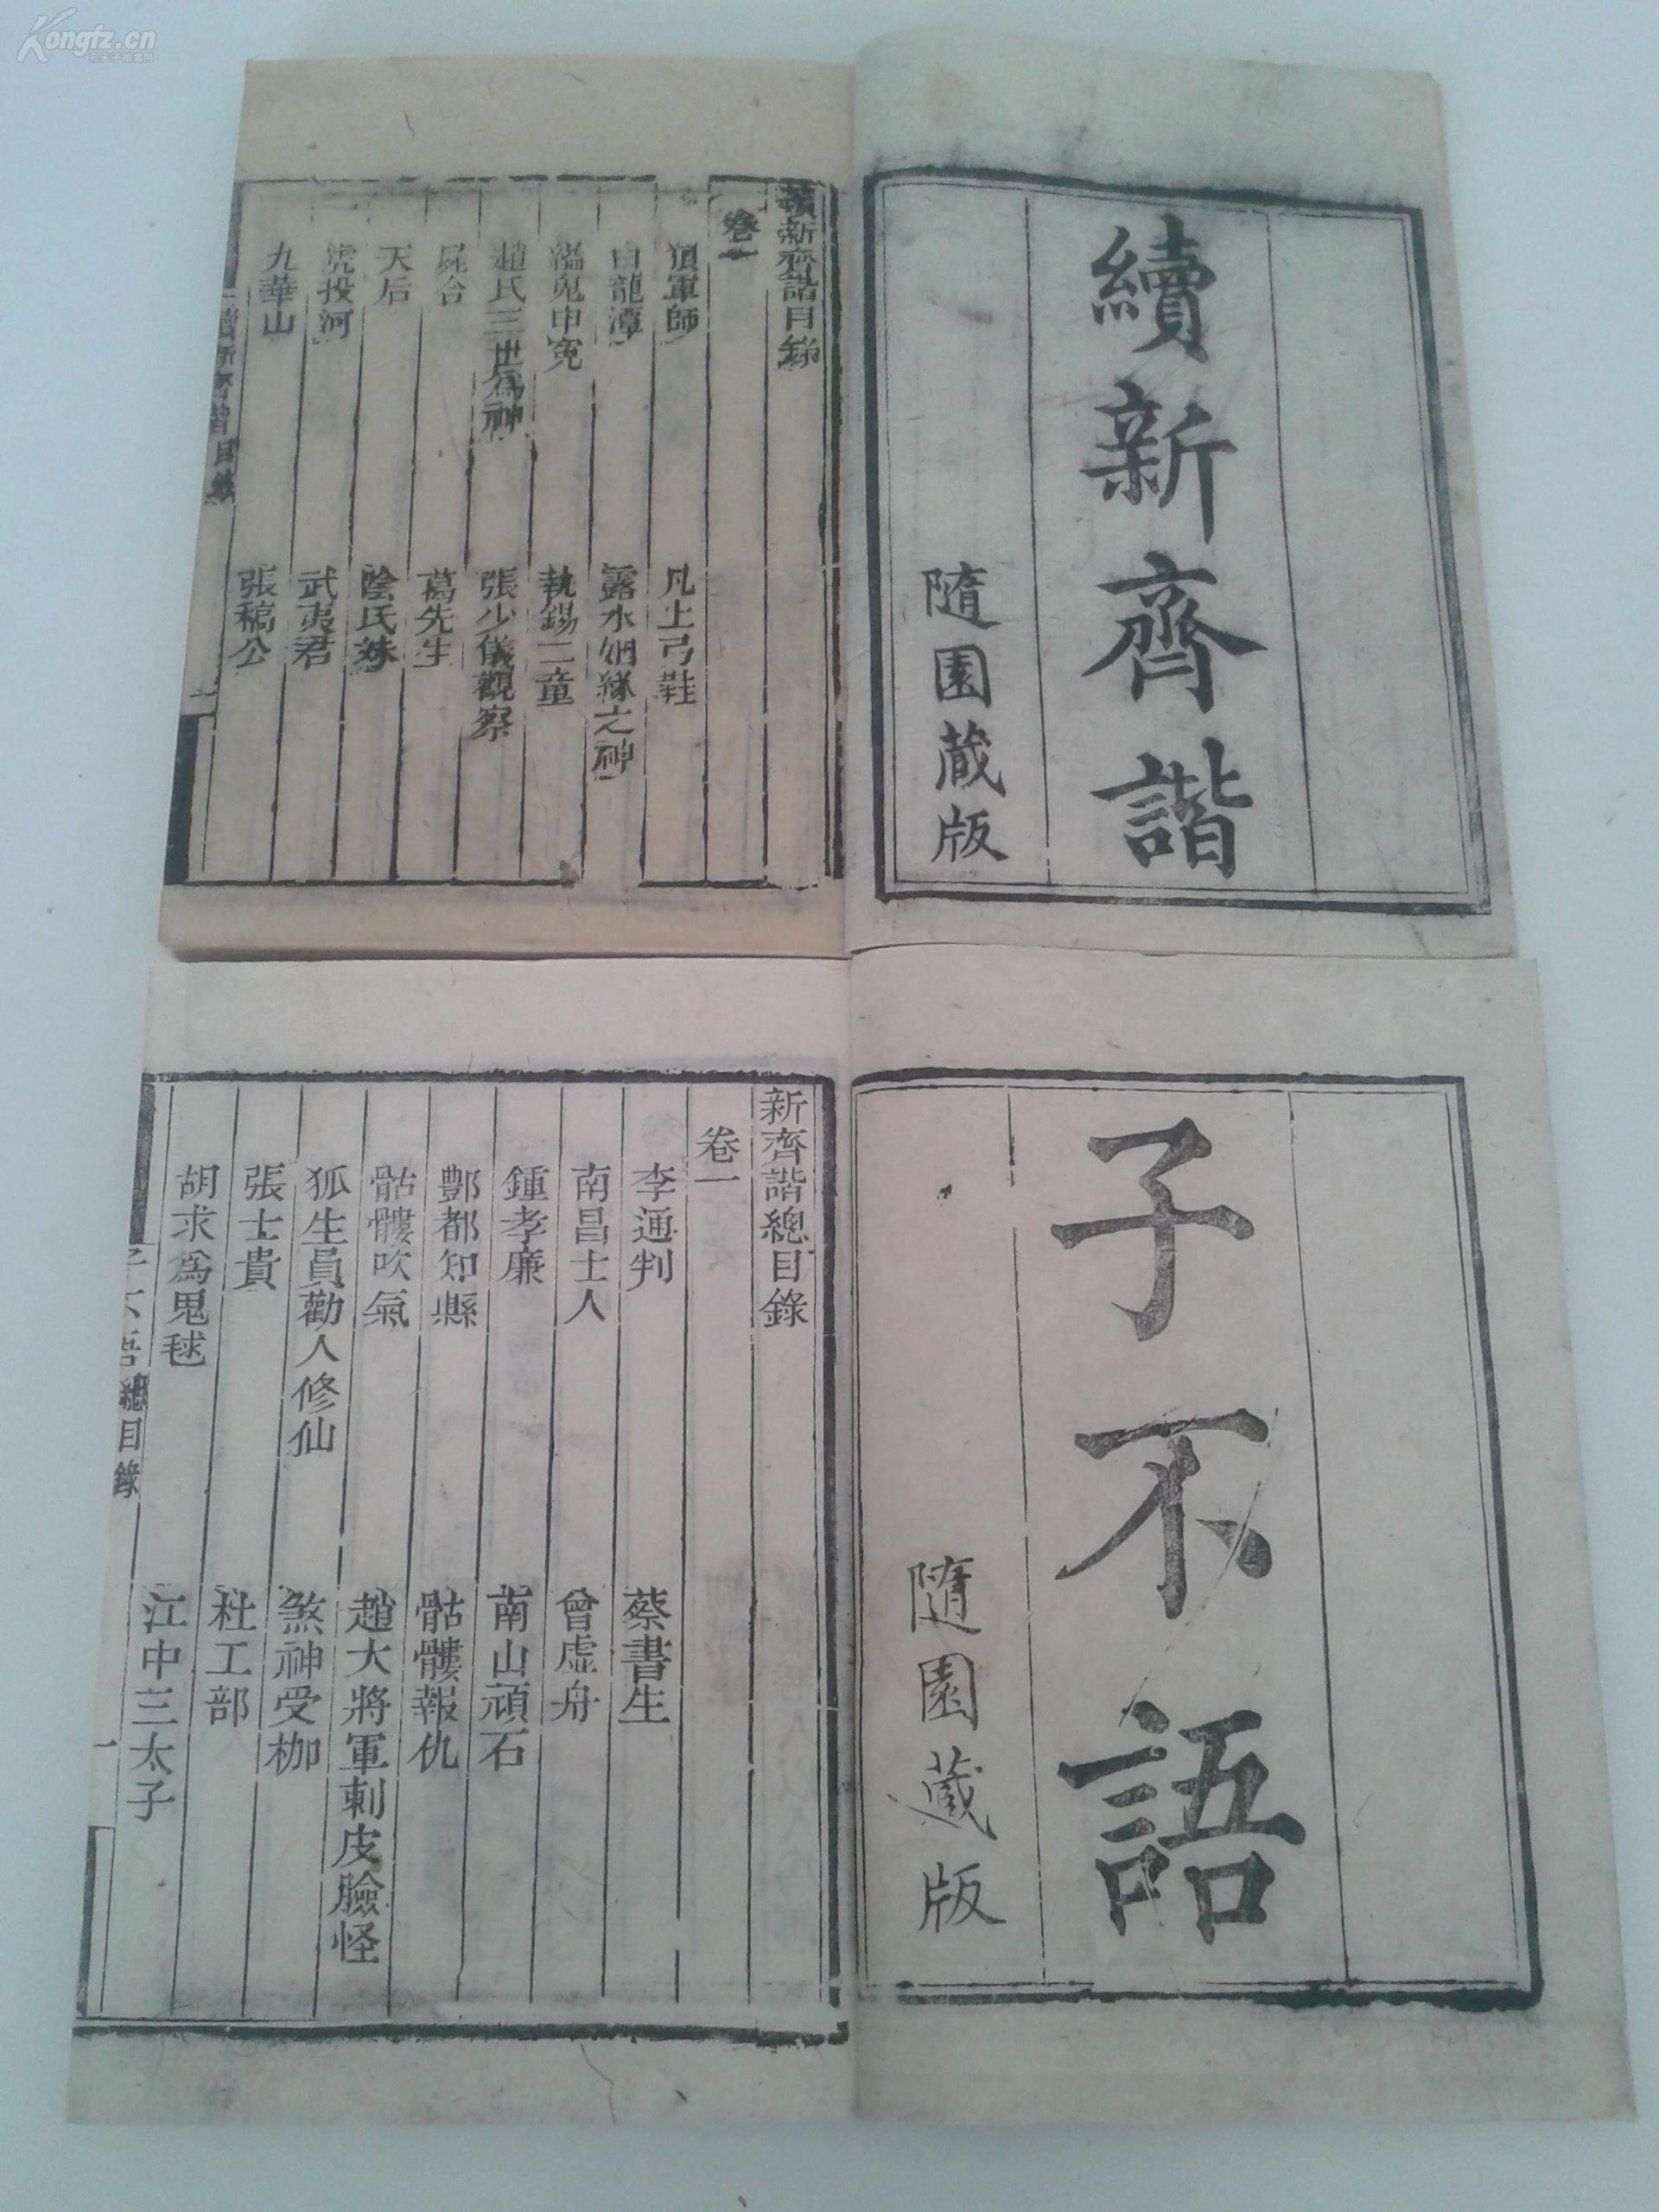 Kongfz.cn
續新齊諧
隨園蔵版
續新齊諧目錄
卷一
狼軍師
凡上弓鞋
白龍潭
露水姻緣之神
溢鬼申寃
執錫二童
趙氏三世爲神
張少儀觀察
屍合
葛先生
天后
陰氏妹
虎投河
武夷君
九華山
張稿公
續新齊諧目錄
一
子不語
隨園蔵版
新齊諧總目錄
卷一
李通判
蔡書生
南昌士人
曾虛舟
鍾孝廉
南山頑石
酆都知縣
骷髏報仇
骷髏吹氣
趙大將軍刺皮臉怪
狐生員勸人修仙
煞神受枷
張士貴
杜工部
胡求爲鬼毬
江中三太子
子不語總目錄
一